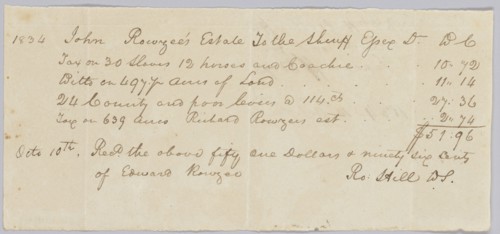 1834 John Rowzee's Estate To the Sheriff Essex Dr. D C
Tax on 30 Slaves 12 horses and Coachie . . 10.72
Ditto on 497 3/4 acres of Land . . . . 11.14
24 County and poor levies @ 114 cts . . 27.36
Tax on 639 acres Richard Rowzees est. . 2.74
$51.96
Octo 10th. Recd. the above fifty one Dollars & ninety six cents
of Edward Rowzee Ro. Hill DS.